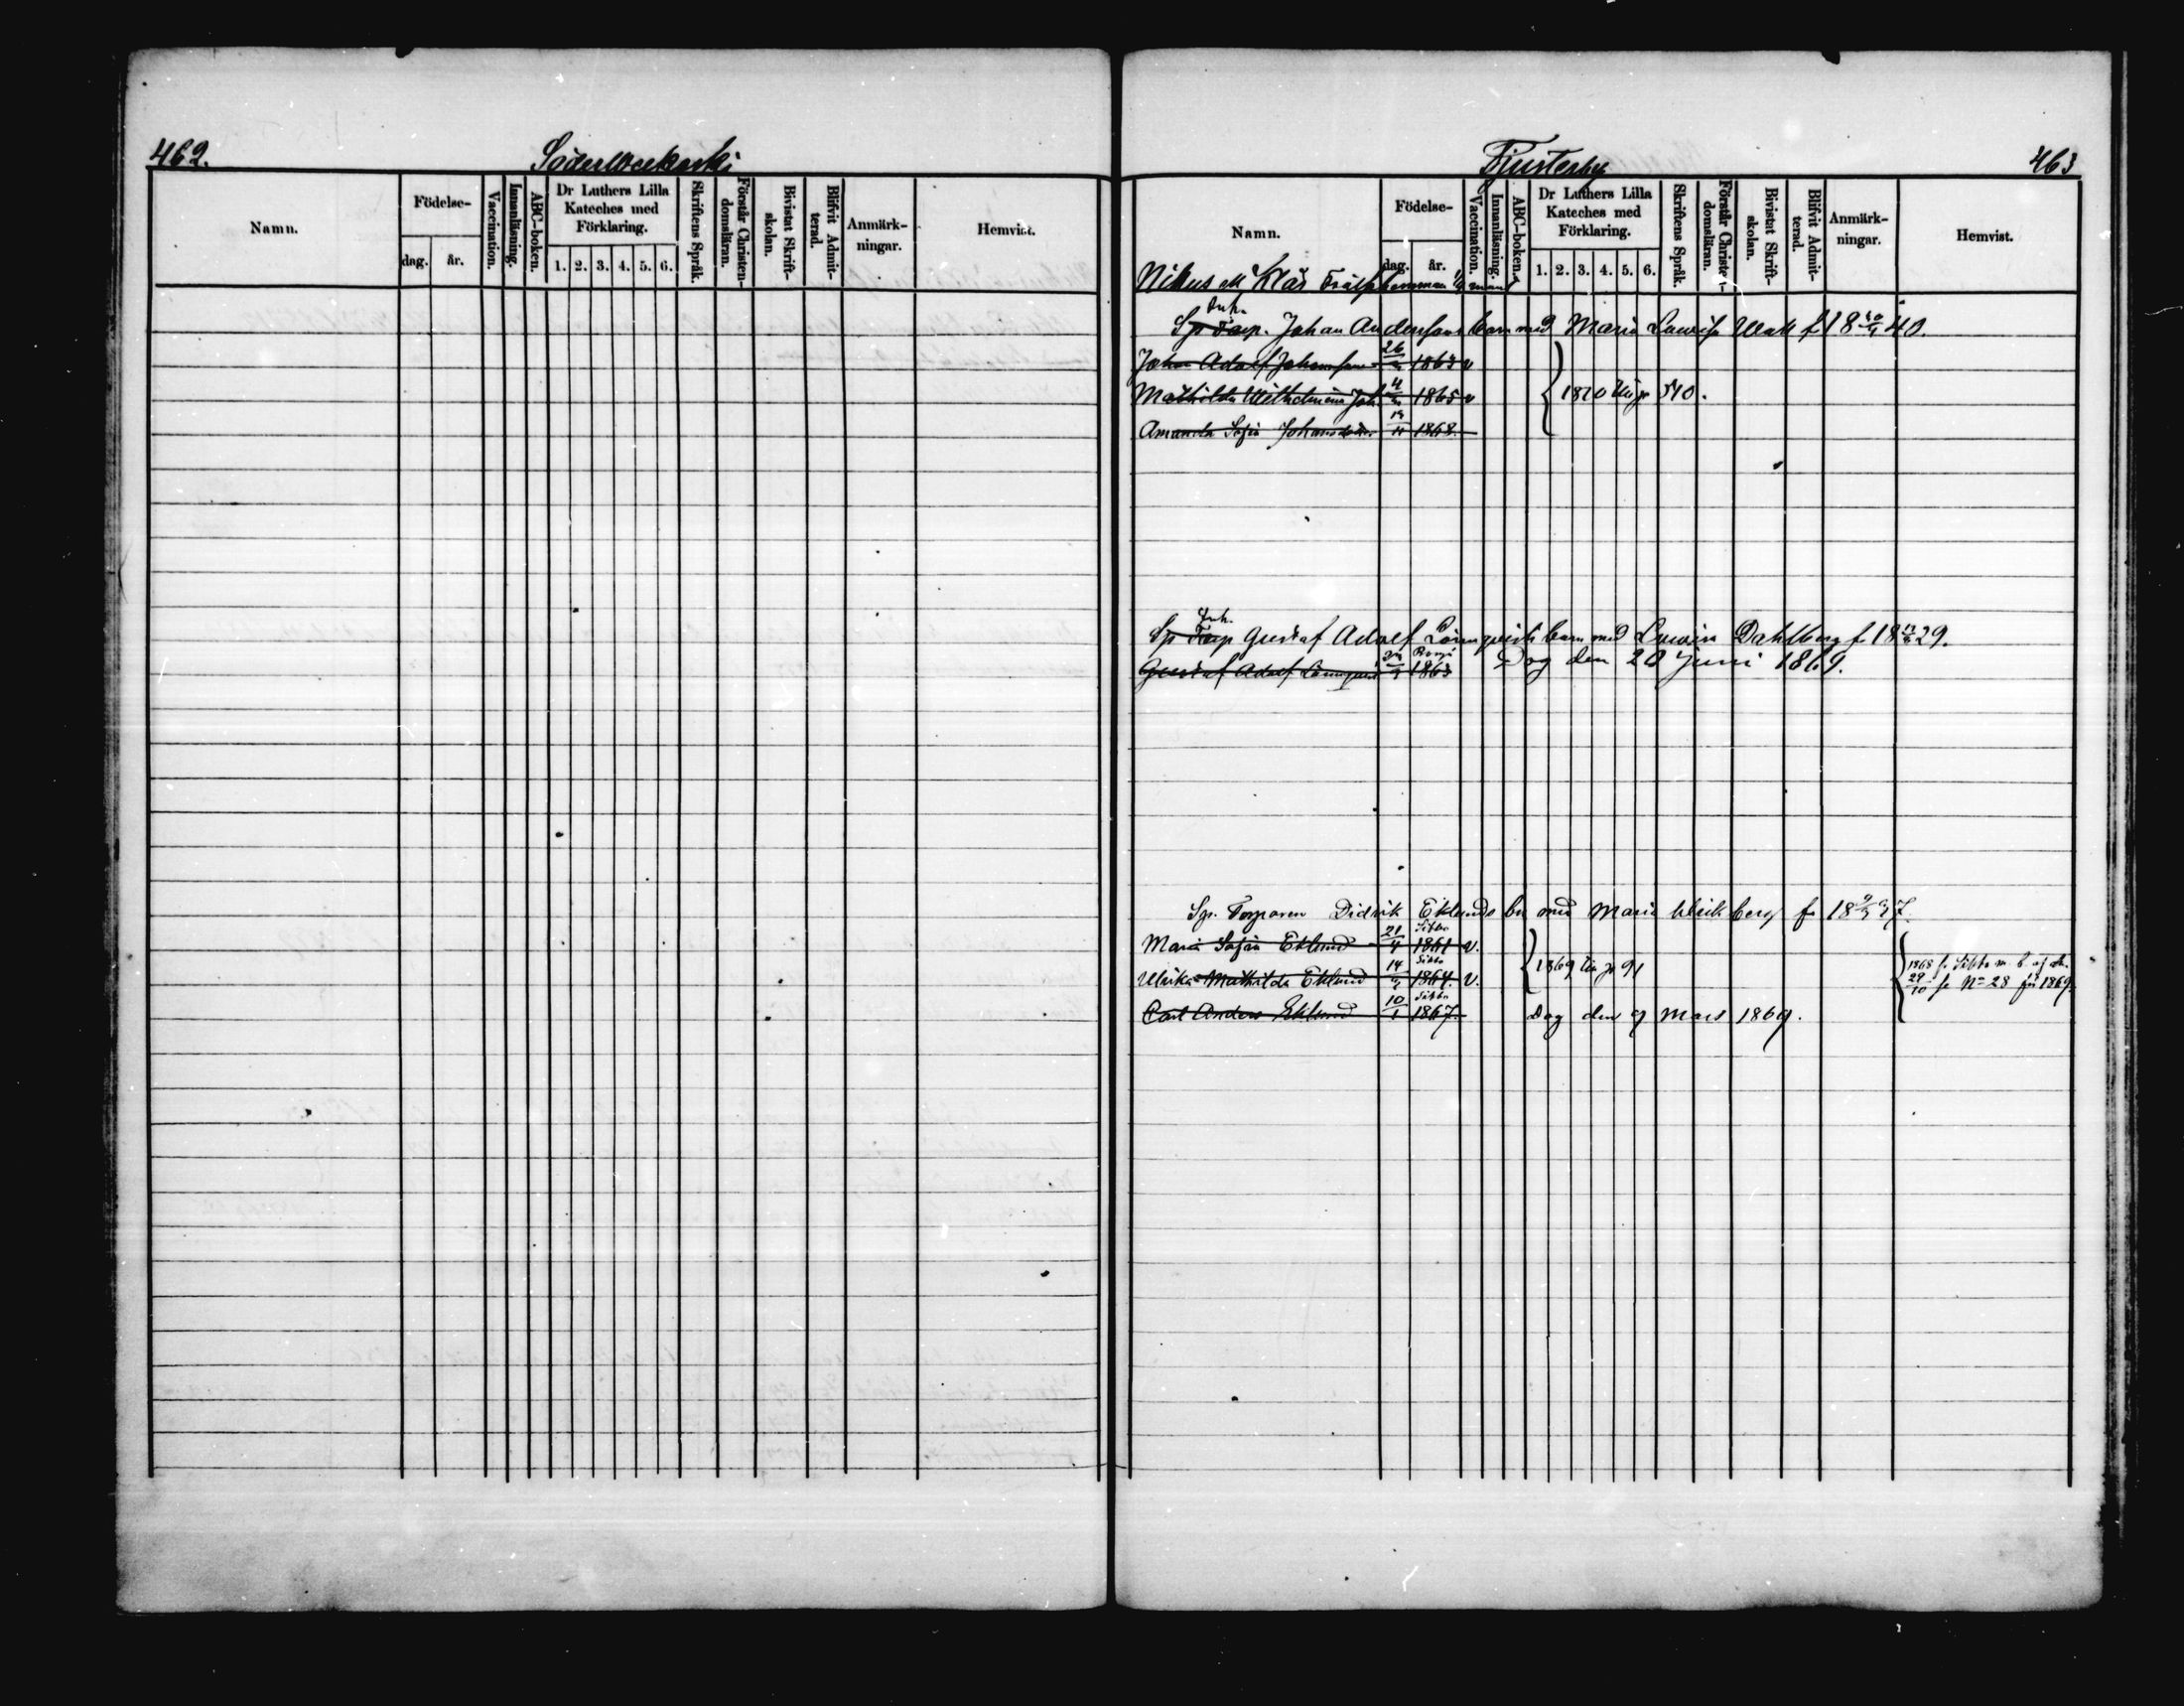 462.
Söderweckoski
Namn.
Födelse-
dag. år.
Vaccination.
Innanläsning.
ABC-boken.
Dr Luthers Lilla
Kateches med
Förklaring.
1. 2. 3. 4. 5. 6.
Skriftens Språk.
Förstår Christen-
domsläran.
Bivistat Skrift-
skolan.
Blifvit Admit-
terad.
Anmärk-
ningar.
Hemvist.
Tjusterby
463
Namn.
Födelse-
dag. år.
Vaccination.
Innanläsning.
ABC-boken.
Dr Luthers Lilla
Kateches med
Förklaring.
1. 2. 3. 4. 5. 6.
Skriftens Språk.
Förstår Christen-
domsläran.
Bivistat Skrift-
skolan.
Blifvit Admit-
terad.
Anmärk-
ningar.
Hemvist.
Inh.
Sp Torp. Johan Anderssons barn med Maria f 18 40.
Johan Adolf Johansson 26 1863 v
Mathilda Wilhelmina Joh. 4 1865 v
1870 510.
Amanda Sofia Johansdr. 1868.
Inh.
Sp Torp Gustaf Adolf Lönnqvists barn med Lovisa Dahlberg f. 18 29.
Gustaf Adolf Lönnqvist Borgå 1863
Dog den 20 Juni 1869.
Sp. Torparen Didrik Eklunds bn med Maria Ulrik berg f. 18 37
Maria Sofia Eklund 21/4 Sibbo 1861 v.
1869 91
Ulrika Mathilda Eklund 14 Sibbo 1864. v.
1868 fr Sibbo m. b. af
29/10 fr No 28 för 1869.
Carl Anders Eklund 10/1 Sibbo 1867.
Dog den 9 Mars 1869.